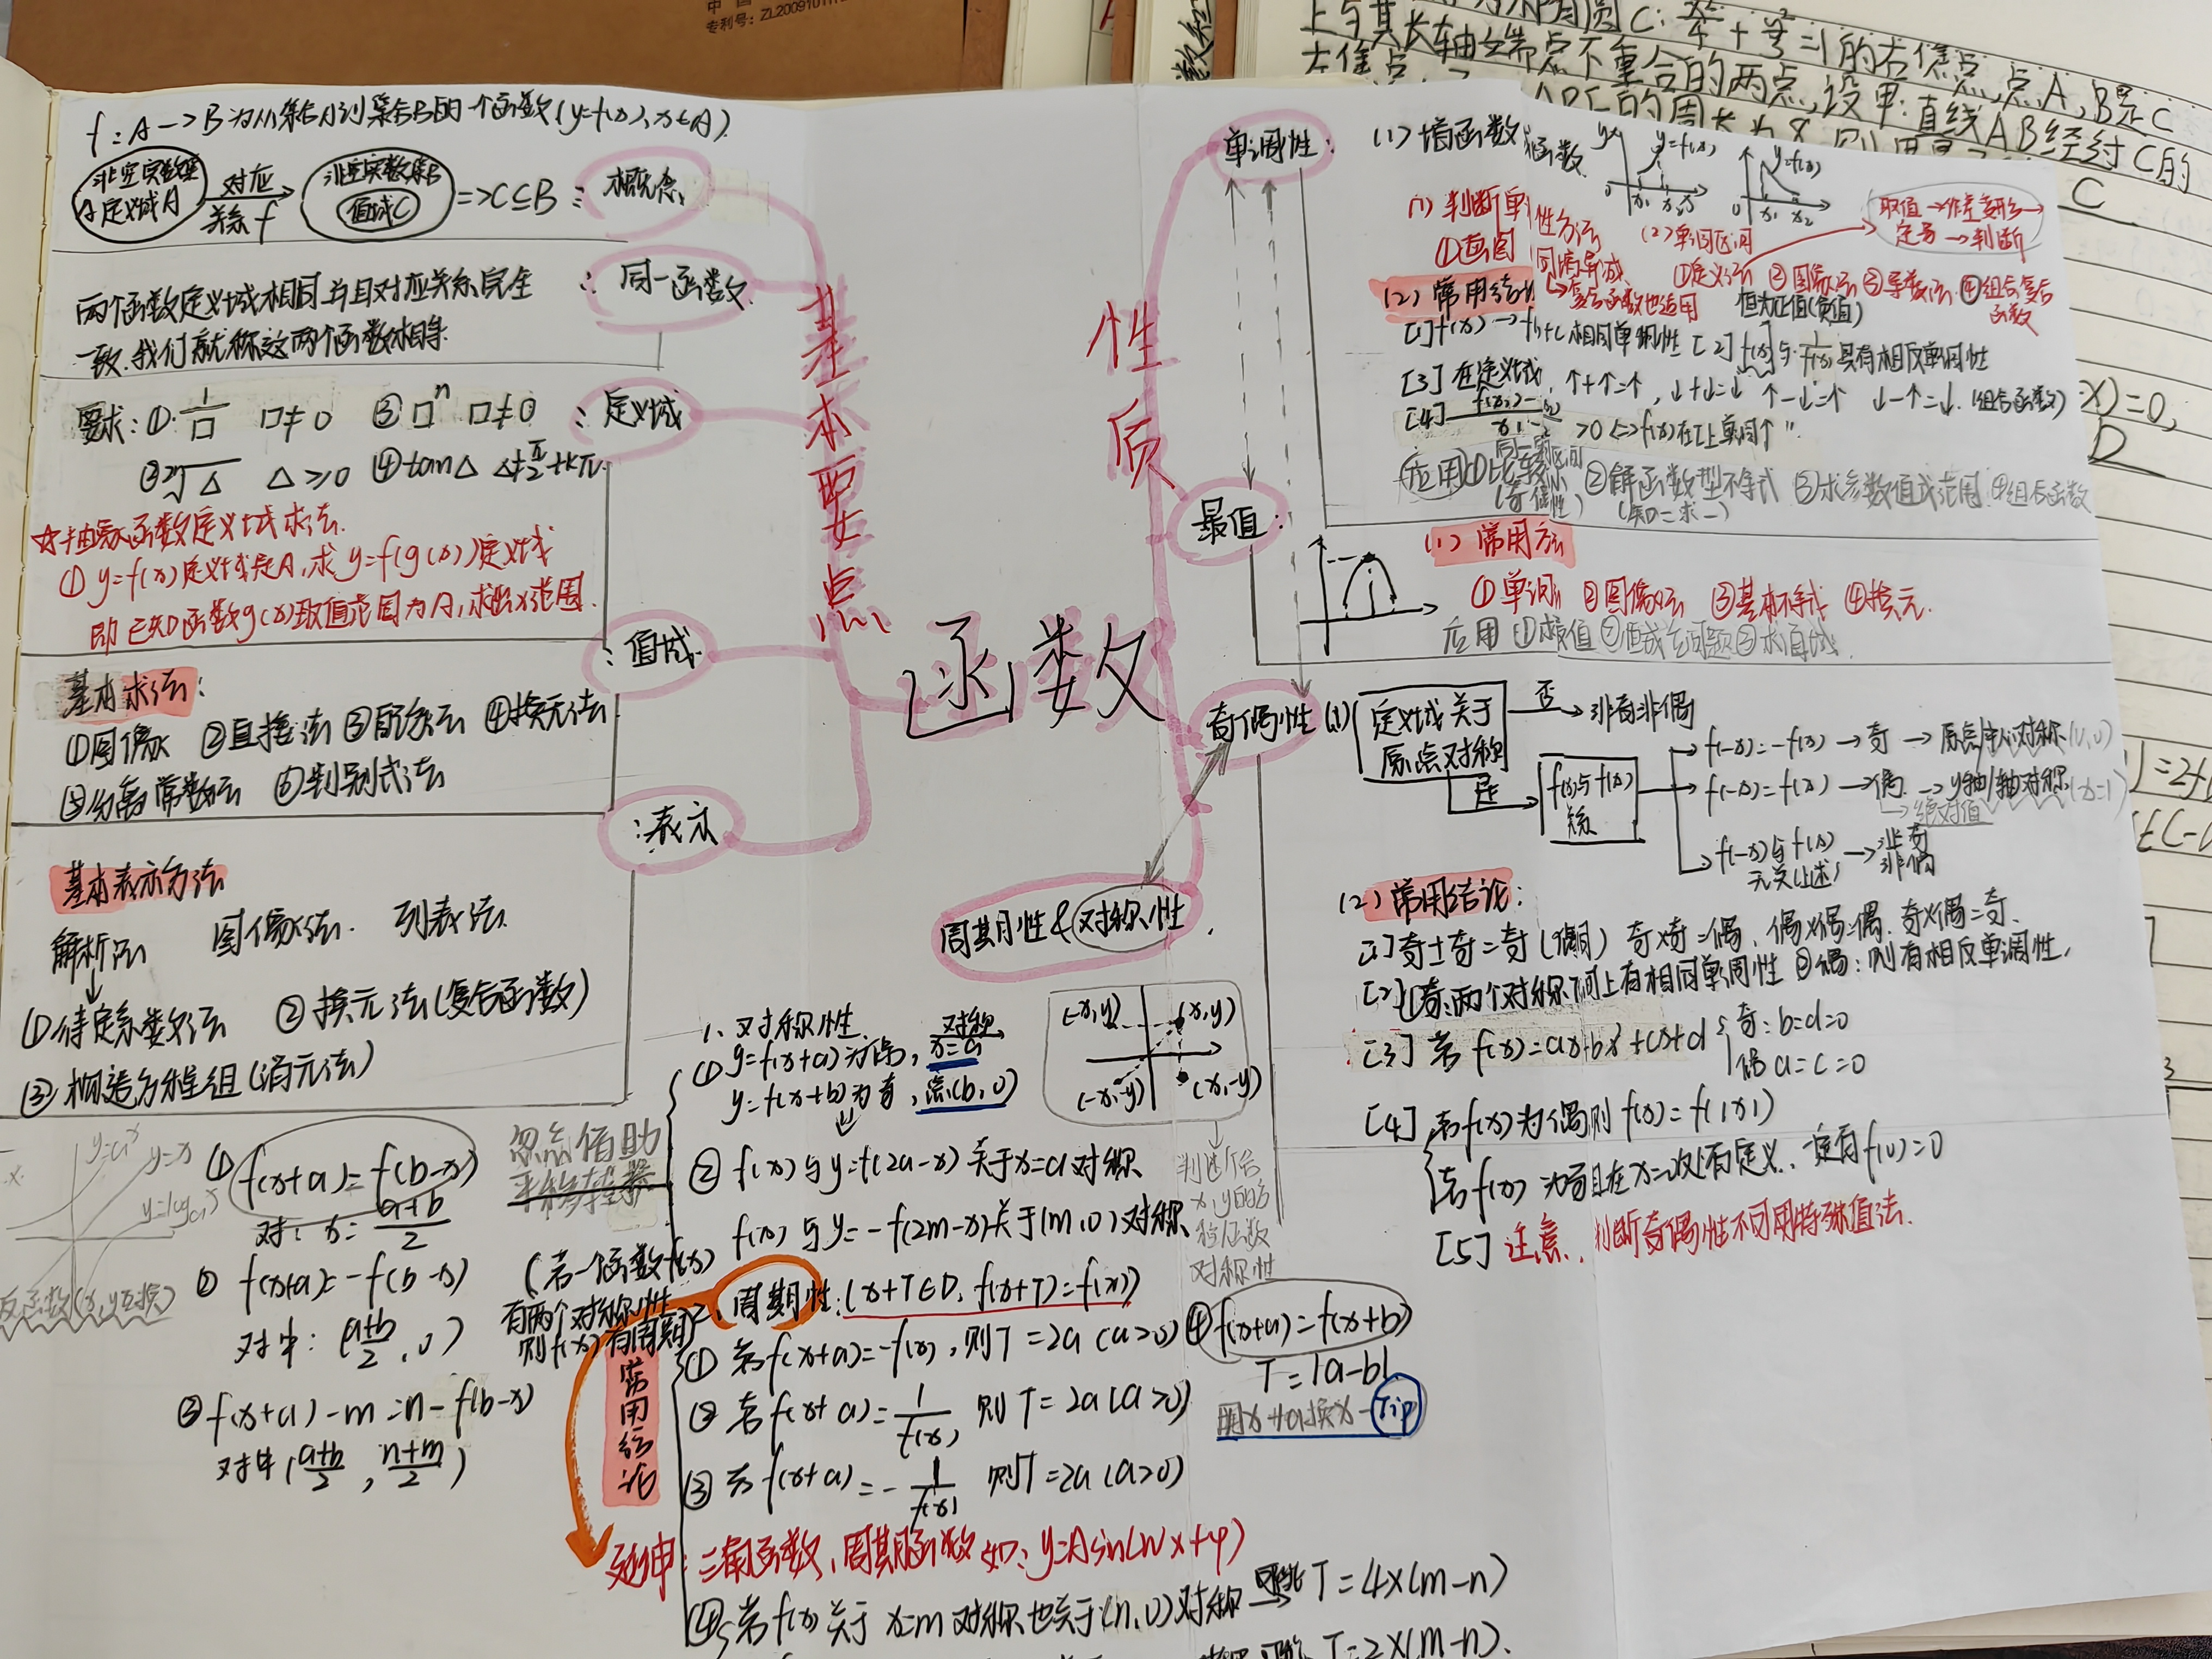 中国
专利号: ZL2009101
上与其长轴端点不重合的两点,设甲:直线AB经过C的
f:A→B为从集合A到集合B的一个函数(y=f(x),x∈A).
非空实数集
定义域A
对应
关系f
非空实数集B
值域C
=>C⊆B
:概念
两个函数定义域相同并且对应关系完全
一致.我们就称这两个函数相等.
:同一函数
要求:①.1/□ □≠0 ③□ⁿ □≠0
:定义域
②²ⁿ√△ △≥0 ④tan△ △≠π/2+kπ.
☆抽象函数定义域求法.
①y=f(x)定义域是A,求y=f(g(x))定义域
即已知函数g(x)取值范围为A,求出x范围.
:值域
基本求法:
①图像 ②直接法 ③配方法 ④换元法
⑤分离常数法 ⑥判别式法
:表示
基本表示方法
解析法 图像法. 列表法.
①待定系数法 ②换元法(复合函数)
③构造方程组(消元法)
基本要点
函数
性质
单调性:
(1)增函数 函数.
y y=f(x)
0 x₁ x₂ x
y=f(x)
0 x₁ x₂
(1)判断单 性方法
①画图
同增异减
复合函数也适用
(2)单调区间
取值→作差变形→
定号→判断
①定义法 ②图像法 ③导数法 ④组合复合
函数
(2)常用结
恒为正值(负值)
[1]f(x)→f(x)+c相同单调性 [2]f(x)与1/f(x)具有相反单调性
[3]在定义域, ↑+↑=↑, ↓+↓=↓ ↑-↓=↑ ↓-↑=↓.(组合函数)
[4] >0<=>f(x)在I上单调↑
应用①比较 ②解函数型不等式 ③求参数值或范围 ④组合函数
同一 区间
(奇偶性)
(知二求一)
最值:
(1)常用方法
①单调 ②图像法 ③基本不等式 ④换元.
应用 ①求最值 ②恒成立问题 ③求值域.
奇偶性(1)
定义域关于
原点对称
否→非奇非偶
是→
f(-x)与f(x)
关系
f(-x)=-f(x)→奇→原点/中心对称(0,0)
f(-x)=f(x)→偶→y轴/轴对称
→绝对值
f(-x)与f(x)
无关(上述)→非奇
非偶
(2)常用结论:
[1]奇±奇=奇(偶同) 奇×奇=偶, 偶×偶=偶. 奇×偶=奇.
[2]①奇:两个对称区间上有相同单调性 ②偶:则有相反单调性.
[3]若f(x)=ax³+bx²+cx+d
奇:b=d=0
偶a=c=0
[4]若f(x)为偶则f(x)=f(|x|)
若f(x)为奇且在x=0处有定义.一定有f(0)=0
[5]注意,判断奇偶性不可用特殊值法.
周期性&对称性.
1.对称性.
①y=f(x+a)为偶, 对称 x=a
y=f(x+b)为奇, 点(b,0)
②f(x)与y=f(2a-x)关于x=a对称
f(x)与y=-f(2m-x)关于(m,0)对称
(-x,y) (x,y)
(-x,-y) (x,-y)
判断后
x,y的
函数
对称性
y=aˣ
y=x
反函数(x,y互换)
①f(x+a)=f(b-x)
对: x=(a+b)/2
②f(x+a)=-f(b-x)
对中:((a+b)/2,0)
③f(x+a)-m=n-f(b-x)
对中((a+b)/2,(n+m)/2)
(若一个函数f(x)
有两个对称性
则f(x)有周期)
二、周期性:(x+T∈D,f(x+T)=f(x))
常用结论
①若f(x+a)=-f(x),则T=2a(a>0)
②若f(x+a)=1/f(x), 则T=2a(a>0)
③若f(x+a)=-1/f(x) 则T=2a(a>0)
④f(x+a)=f(x+b)
T=|a-b|
用x+a换x-Tip
延申:三角函数,周期函数如:y=Asin(wx+φ)
④若f(x)关于x=m对称也关于(n,0)对称 T=4×(m-n)
T=2×(m-n).